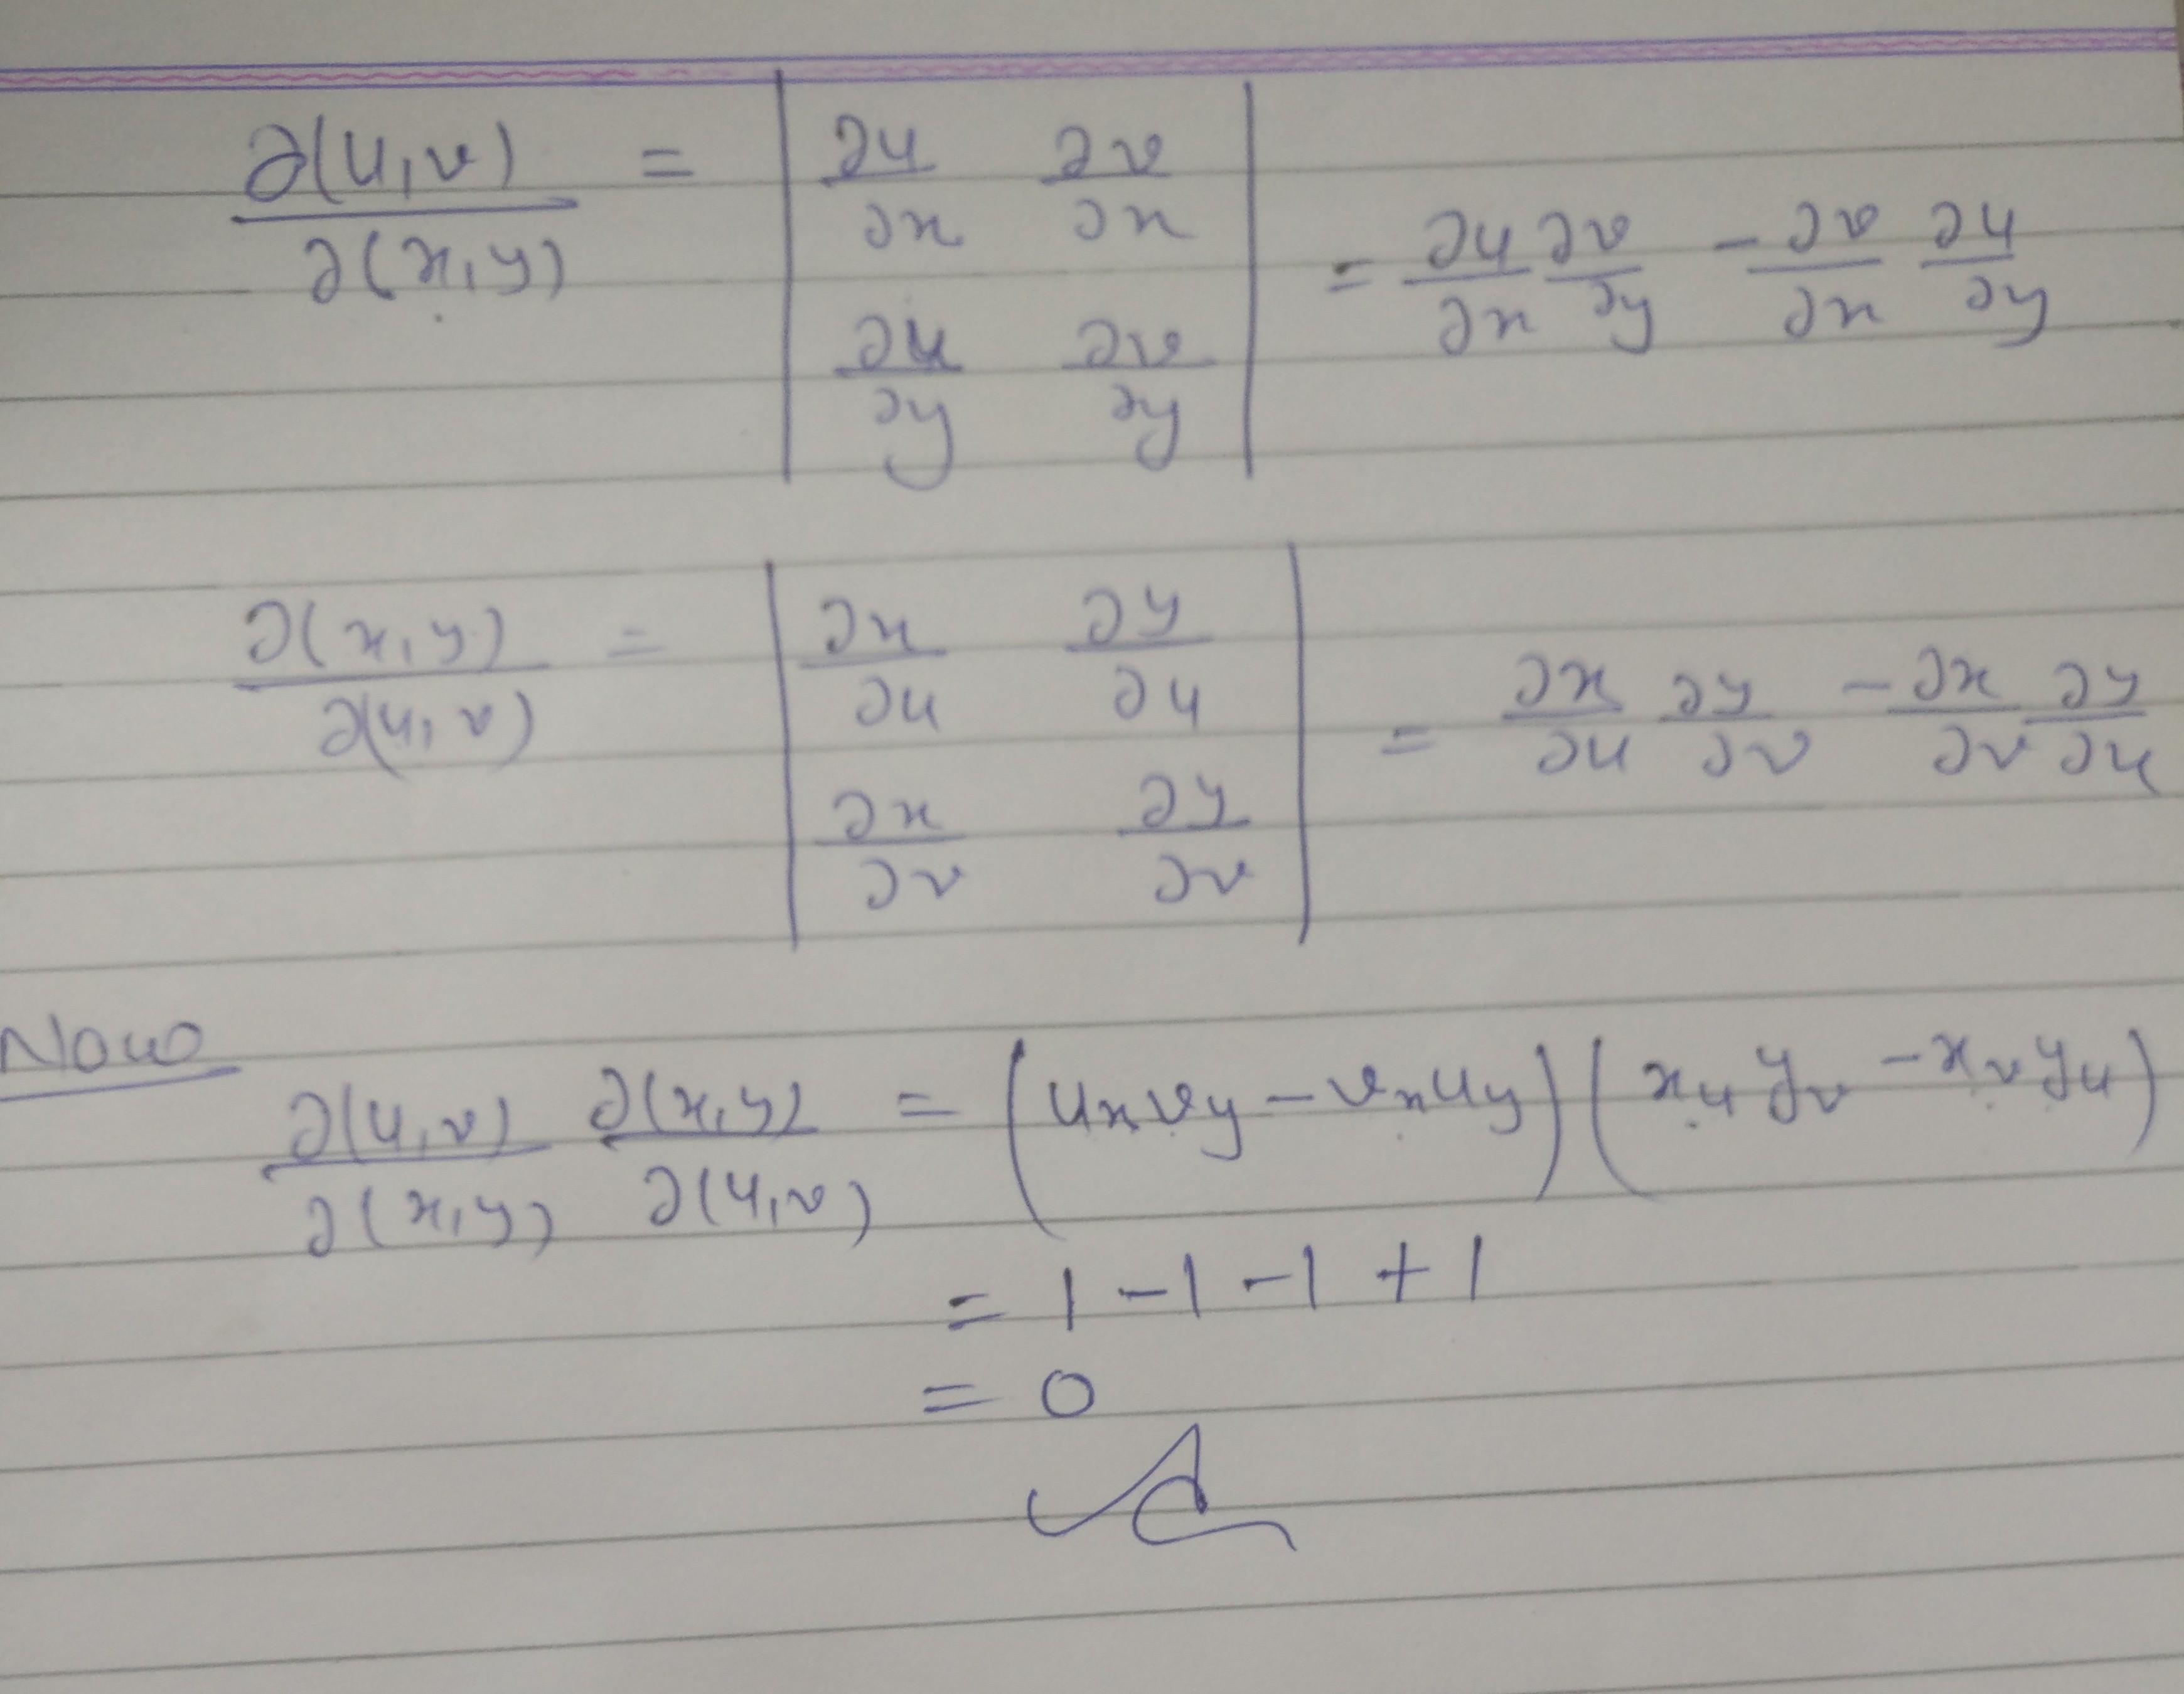 ∂(u,v)/∂(x,y) = | ∂u/∂x ∂v/∂x ; ∂u/∂y ∂v/∂y | = ∂u/∂x ∂v/∂y - ∂v/∂x ∂u/∂y
∂(x,y)/∂(u,v) = | ∂x/∂u ∂y/∂u ; ∂x/∂v ∂y/∂v | = ∂x/∂u ∂y/∂v - ∂x/∂v ∂y/∂u
Now
∂(u,v)/∂(x,y) ∂(x,y)/∂(u,v) = (u_x v_y - v_x u_y)(x_u y_v - x_v y_u)
= 1 - 1 - 1 + 1
= 0